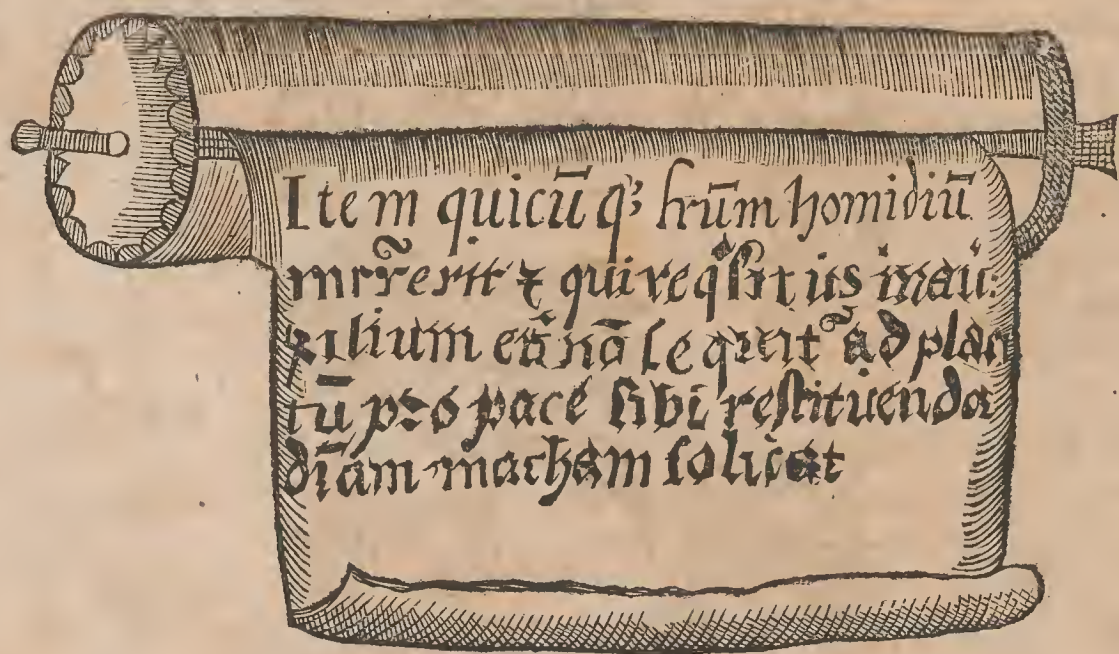 Item quicū qꝫ frūm homidiū
mr̃rerit ⁊ qui reqͥsit us in aū:
xilium eā nō se querit̃ ad placi
tū pro pace sibi restituenda
diāam marcham solicat